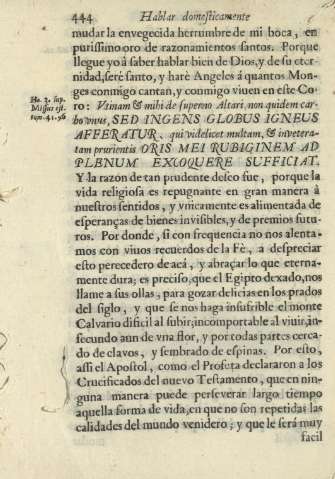 444 Hablar domesticamente
mudar la envegecida herrumbre de mi boca, en
purissimo oro de razonamientos santos. Porque
llegue yo â saber hablar bien de Dios, y de su eter-
nidad, serè santo, y harè Angeles â quantos Mon-
ges conmigo cantan, y conmigo viuen en este Co-
Ho. 2. sup.
Missus est.
num. 41. 96
ro: Vtinam & mihi de superno Altari, non quidem car-
bo vnus, SED INGENS GLOBUS IGNEUS
AFFERATUR, qui videlicet multam, & invetera-
tam prurientis ORIS MEI RUBIGINEM AD
PLENUM EXCOQUERE SUFFICIAT.
Y la razon de tan prudente deseo fue, porque la
vida religiosa es repugnante en gran manera â
nuestros sentidos, y vnicamente es alimentada de
esperanças de bienes invisibles, y de premios futu-
ros. Por donde, si con frequencia no nos alenta-
mos con viuos recuerdos de la Fè, a despreciar
esto perecedero de acá, y abraçar lo que eterna-
mente dura; es preciso, que el Egipto dexado, nos
llame a sus ollas, para gozar delicias en los prados
del siglo, y que se nos haga insufrible el monte
Calvario dificil al subir; incomportable al viuir, in-
fecundo aun de vna flor, y por todas partes cerca-
do de clavos, y sembrado de espinas. Por esto,
assi el Apostol, como el Profeta declararon a los
Crucificados del nuevo Testamento, que en nin-
guna manera puede perseverar largo tiempo
aquella forma de vida, en que no son repetidas las
calidades del mundo venidero; y que le serà muy
facil